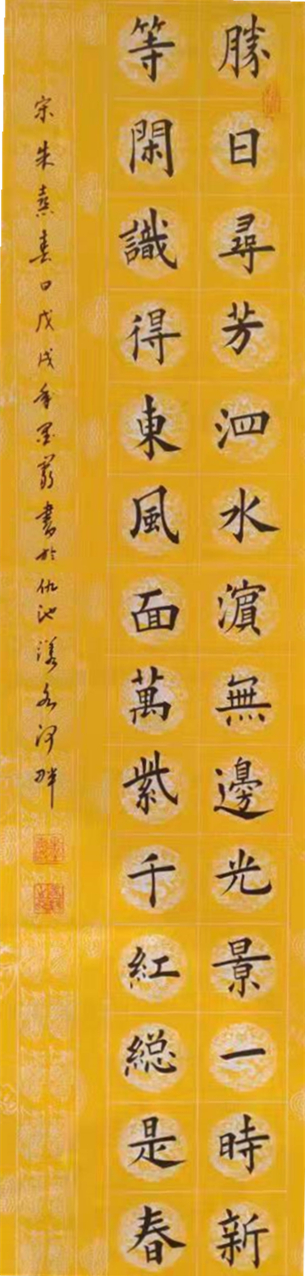 勝日尋芳泗水濵無邊光景一時新
等閑識得東風面萬紫千紅総是春
宋朱熹春日戊戌年墨翁書於仇池漾水河畔